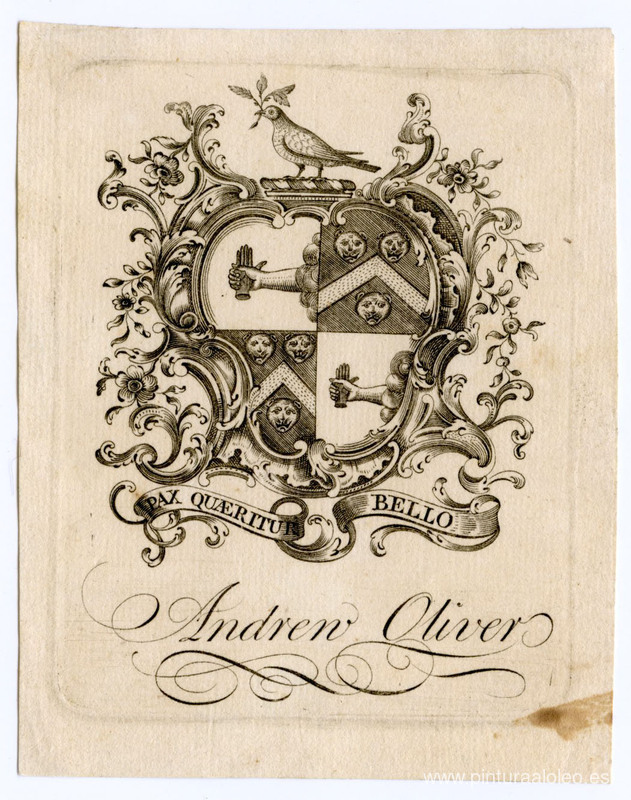 PAX QUÆRITUR BELLO
Andrew Oliver
www.pinturaaloleo.es